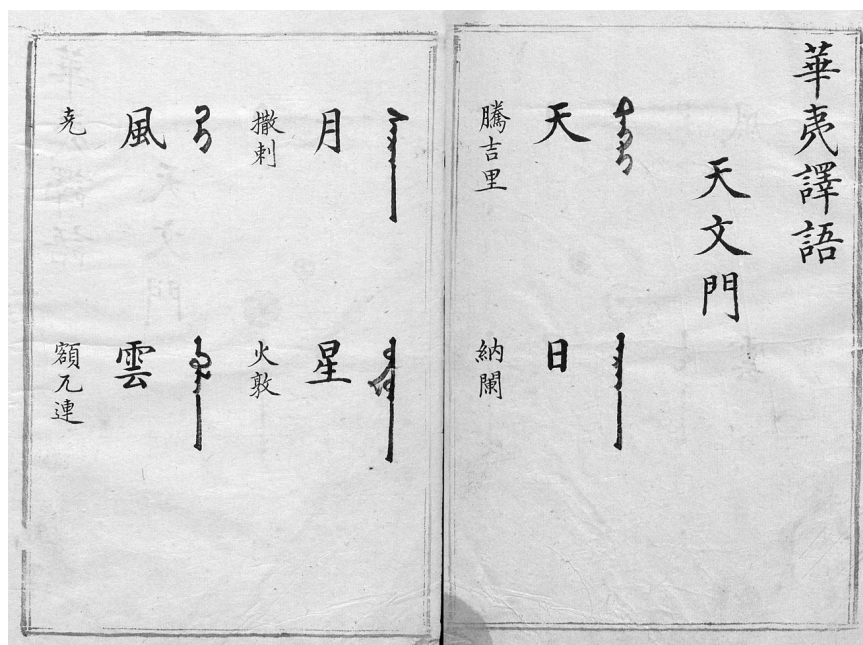 華夷譯語
天文門
ᠲᠩᠷᠢ
天
騰吉里
ᠨᠠᠷᠠᠨ
日
納闌
ᠰᠠᠷᠠᠨ
月
撒剌
ᠣᠳᠤᠨ
星
火敦
ᠬᠡᠢ
風
克
ᠡᠭᠦᠯᠡᠨ
雲
額兀連